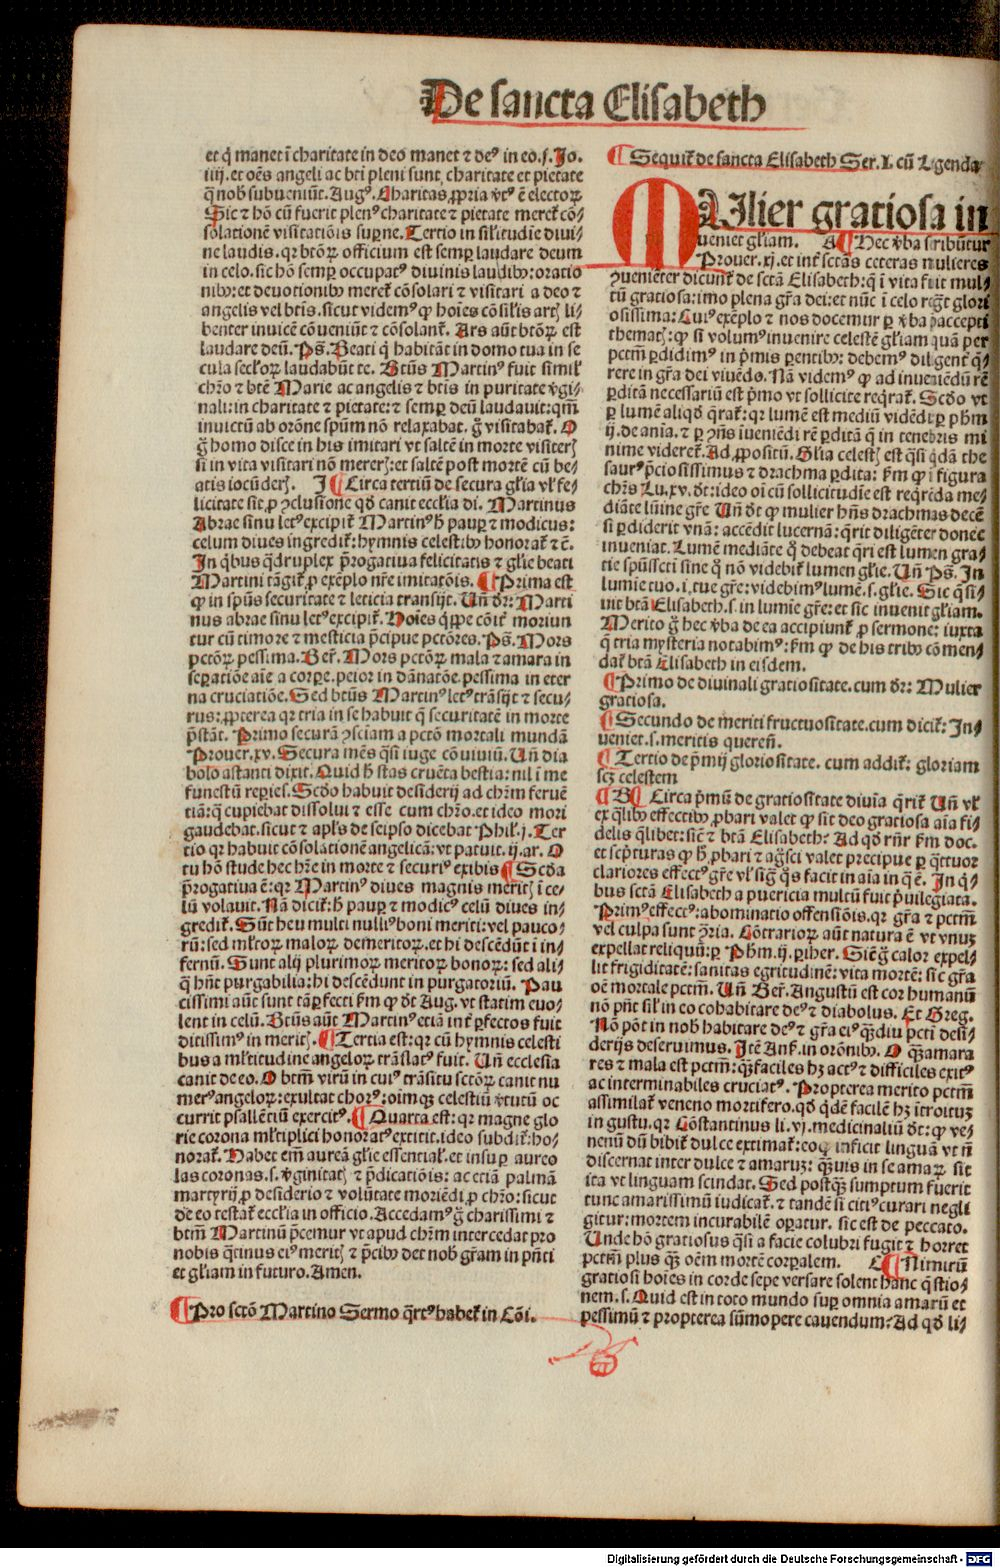 De sancta Elisabeth
et q̇ manet ī charitate in deo manet ⁊ deꝰ in eo.j. Jo.
iiij. et oēs angeli ac bti pleni sunt charitate et pietate
q̇ nob̄ subueniūt. Augꝰ. Charitas ꝓpria v̓tꝰ ē electoꝝ
Sic ⁊ hō cū fuerit plenꝰ charitate ⁊ pietate meret̄ cō⸗
solationē visitatiōis sup̱ne. Tertio in sil̓itudīe diui⸗
ne laudis. qꝛ btōꝝ officium est semp̱ laudare deum
in celo. sic hō semp̱ occupatꝰ diuinis laudibꝰ: oratio
nibꝰ: et deuotionibꝰ meret̄ cōsolari ⁊ visitari a deo ⁊
angelis vel btis. sicut videmꝰ ꝙ hoīes cōsil̓is artꝭ li⸗
benter inuicē cōueniūt ⁊ cōsolant̄. Ars aūt btōꝝ est
laudare deū. Pṡ. Beati q̇ habitāt in domo tua in se
cula secl̓oꝝ laudabūt te. Btūs Martinꝰ fuit simil̓
chr̄o ⁊ btē Marie ac angelis ⁊ btis in puritate v̓gi⸗
nali: in charitate ⁊ pietate: ⁊ semp̱ deū laudauit: qm̄
inuictū ab orōne spūm nō relaxabat. g̊ visitabat̄. O
g̊ homo disce in his imitari vt saltē in morte visiterꝭ
si in vita visitari nō mererꝭ: et saltē post mortē cū be⸗
atis iocūderꝭ. J ¶ Circa tertiū de secura gl̓ia vl̓ fe⸗
licitate sit ꝓ ꝯclusione qd̄ canit eccl̓ia dī. Martinus
Abrae sinu letꝰ excipit̄ Martinꝰ h̄ paup̱ ⁊ modicus:
celum diues ingredit̄: hymnis celestibꝰ honorat̄ ⁊ c̄.
In q̇bus q̄druplex p̄rogatiua felicitatis ⁊ gl̓ie beati
Martini tāgit̄ ꝓ exēplo nr̄e imitatōis. ¶ Prima est
ꝙ in spūs securitate ⁊ leticia transijt. Un̄ dr̄: Marti
nus abrae sinu letꝰ excipit̄. Hoīes q̇ppe cōīt̄ moriun
tur cū timore ⁊ mesticia p̄cipue pctōres. Pṡ. Mors
pctōꝝ pessima. Ber̄. Mors pctōꝝ mala ⁊ amara in
sep̱atiōe aīe a corpe. peior in dānatōe. pessima in eter
na cruciatiōe. Sed btūs Martinꝰ letꝰ trāsijt ⁊ secu⸗
rus: ꝓpterea qꝛ tria in se habuit q̄ securitatē in morte
p̄stāt. Primo securā ꝯsciam a pctō mortali mundā
Prouer. xv. Secura mēs q̄si iuge cōuiuiū. Un̄ dia
bolo astanti dixit. Quid h̄ stas cruēta bestia: nil ī me
funestū rep̱ies. Scd̄o habuit desideriū ad chr̄m feruē
tiā: q̇ cupiebat dissolui ⁊ esse cum chr̄o. et ideo mori
gaudebat. sicut ⁊ apl̓s de seipso dicebat Phil̓. j. Ter
tio qꝛ habuit cōsolationē angelicā: vt patuit. ij. ar. O
tu hō stude hec hr̄e in morte ⁊ securꝰ exibis ¶ Scd̄a
p̄rogatiua ē: qꝛ Martinꝰ diues magnis meritꝭ ī ce⸗
lū volauit. Nā dicit̄: h̄ paup̱ ⁊ modicꝰ celū diues in⸗
gredit̄. Sūt heu multi nulliꝰ boni meriti: vel pauco⸗
rū: sed ml̓toꝝ maloꝝ demeritoꝝ. et hi descēdūt ī in⸗
fernū. Sunt alij plurimoꝝ meritoꝝ bonoꝝ: sed ali⸗
q̄ hn̄t purgabilia: hi descēdunt in purgatoriū. Pau
cissimi aūt sunt tāp̱fecti ẜm ꝙ dt̄ Aug. vt statim euo⸗
lent in celū. Btūs aūt Martinꝰ etiā int̄ p̱fectos fuit
ditissimꝰ in meritꝭ. ¶ Tertia est: qꝛ cū hymnis celesti
bus a ml̓titudine angeloꝝ trāslatꝰ fuit. Un̄ ecclesia
canit de eo. O btm̄ virū in cuiꝰ trāsitu sctōꝝ canit nu
merꝰ angeloꝝ: exultat chorꝰ: oīmqꝫ celestiū v̓tutū oc
currit psallētiū exercitꝰ. ¶ Quarta est: qꝛ magne glo
rie corona ml̓tiplici honoratꝰ extitit. ideo subdit̄: ho⸗
norat̄. Habet em̄ aureā gl̓ie essentialꝭ. et insup̱ aureo
las coronas. s. v̓ginitatꝭ ⁊ p̄dicatiōis: ac etiā palmā
martyrij ꝓ desiderio ⁊ volūtate moriēdi ꝓ chr̄o: sicut
de eo testat̄ eccl̓ia in officio. Accedamꝰ g̊ charissimi ⁊
btm̄ Martinū p̄cemur vt apud chr̄m intercedat pro
nobis q̄tinus eiꝰ meritꝭ ⁊ p̄cibꝰ det nob̄ gr̄am in pn̄ti
et gl̓iam in futuro. Amen.
¶ Pro sctō Martino Sermo q̄rtꝰ habet̄ in Cōi.
¶ Sequit̄ de sancta Elisabeth Ser. I. cū Lgenda
MUlier gratiosa in
ueniet gl̓iam. A ¶ Hec v̓ba scribūtur
Prouer. xj. et int̄ sctās ceteras mulieres
ꝯueniēter dicunt̄ de sctā Elisabeth: q̄ ī vita fuit mul⸗
tū gratiosa: imo plena gr̄a dei: et nūc ī celo reg̊t glori
osissima: Cuiꝰ exēplo ⁊ nos docemur p̱ v̓ba p̄accepti
themat̓: ꝙ si volumꝰ inuenire celestē gl̓iam quā per
pctm̄ p̱didimꝰ in p̓mis p̱entibꝰ: debemꝰ diligent̄ q̄⸗
rere in gr̄a dei viuēdo. Nā videmꝰ ꝙ ad inueniēdū rē
p̱ditā necessariū est p̓mo vt sollicite req̇rat̄. Scd̄o vt
p̱ lumē aliqd̄ q̄rat̄: qꝛ lumē est mediū vidēdi p̱ phm̄
ij. de anīa. ⁊ p̱ ꝯn̄s iueniēdi rē p̱ditā q̄ in tenebris mi
nime videret̄. Ad ꝓpositū. Gl̓ia celestꝭ est q̄si q̄dā the
saurꝰ p̄ciosissimus ⁊ drachma p̱dita: ẜm ꝙ ī figura
chr̄s Lu. xv. dt̄: ideo oī cū sollicitudīe est req̇rēda me⸗
diāte lūine gr̄e Un̄ dt̄ ꝙ mulier hn̄s drachmas decē
si p̱diderit vnā: accēdit lucernā: q̄rit diligēter donec
inueniat. Lumē mediāte q̊ debeat q̄ri est lumen gra⸗
tie spūsscti sine q̊ nō videbit̄ lumen gl̓ie. Un̄ Pṡ. In
lumīe tuo. i. tue gr̄e: videbimꝰ lumē. s. gl̓ie. Sic q̄si⸗
uit btā Elisabeth. s. in lumīe gr̄e: et sic inuenit gl̓iam.
Merito g̊ hec v̓ba de ea accipiunt̄ ꝓ sermone: iuxta
q̄ tria mysteria notabimꝰ: ẜm ꝙ de his tribꝰ cōmen⸗
dat̄ btā Elisabeth in eisdem.
¶ Primo de diuinali gratiositate. cum dr̄: Mulier
gratiosa.
¶ Secundo de meriti fructuositate. cum dicit̄: In⸗
ueniet. s. meritis queren̄.
¶ Tertio de p̄mij gloriositate. cum addit̄: gloriam
scꝫ celestem
¶ B ¶ Circa p̓mū de gratiositate diuīa q̄rit̄ Un̄ vl̓
ex q̇libꝰ effectibꝰ ꝓbari valet ꝙ sit deo gratiosa aīa fi⸗
delis q̄libet: sicē ⁊ btā Elisabeth? Ad qd̄ rn̄r ẜm doc.
et sc̓pturas ꝙ h̄ ꝓbari ⁊ ag̊sci valet precipue p̱ q̄ttuor
clariores effectꝰ gr̄e vl̓ sig̊ q̄s facit in aīa in q̄ ē. In q̇⸗
bus sctā Elisabeth a puericia multū fuit p̓uilegiata.
Primꝰ effectꝰ: abominatio offensiōis. qꝛ gr̄a ⁊ pctm̄
vel culpa sunt ꝯr̄ia. Cōtrarioꝝ aūt natura ē vt vnuꝫ
expellat reliquū: p̱ Phm̄. ij. p̱iher. Sicē g̊ calor expel⸗
lit frigiditatē: sanitas egritudinē: vita mortē: sic gr̄a
oē mortale pctm̄. Un̄ Ber̄. Angustū est cor humanū
nō pn̄t sil̓ in eo cohabitare deꝰ ⁊ diabolus. Et Greg.
Nō pōt in nob̄ habitare deꝰ ⁊ gr̄a eiꝰ q̄diu pctī desi⸗
derijs deseruimus. Itē Ans̄. in orōnibꝰ. O q̄ꝫ amara
res ⁊ mala est pctm̄: q̄ꝫ faciles hꝫ actꝰ ⁊ difficiles exitꝰ
ac interminabiles cruciatꝰ. Propterea merito pctm̄
assimilat̄ veneno mortifero. qd̄ q̇dē facilē hꝫ ītroituꝫ
in gustu. qꝛ Cōstantinus li. vj. medicinaliū dt̄: ꝙ ve⸗
nenū dū bibit̄ dulce extimat̄: eoq̨ inficit linguā vt n̄
discernat inter dulce ⁊ amaruꝫ: q̄ꝫuis in se amaꝝ sit
ita vt linguam scindat. Sed postq̄ꝫ sumptum fuerit
tunc amarissimū iudicat̄. ⁊ tandē si citiꝰ curari negli
gitur: mortem incurabilē op̱atur. sic est de peccato.
Unde hō gratiosus q̄si a facie colubri fugit ⁊ horret
pctm̄ plus q̄ꝫ oēm mortē corp̱alem. C ¶ Nimirū
gratiosi hoīes in corde sepe versare solent hanc q̄stio⸗
nem. s. Quid est in toto mundo sup̱ omnia amarū et
pessimū ⁊ propterea sūmopere cauendum? Ad qd̄ li⸗
Digitalisierung gefördert durch die Deutsche Forschungsgemeinschaft - DFG